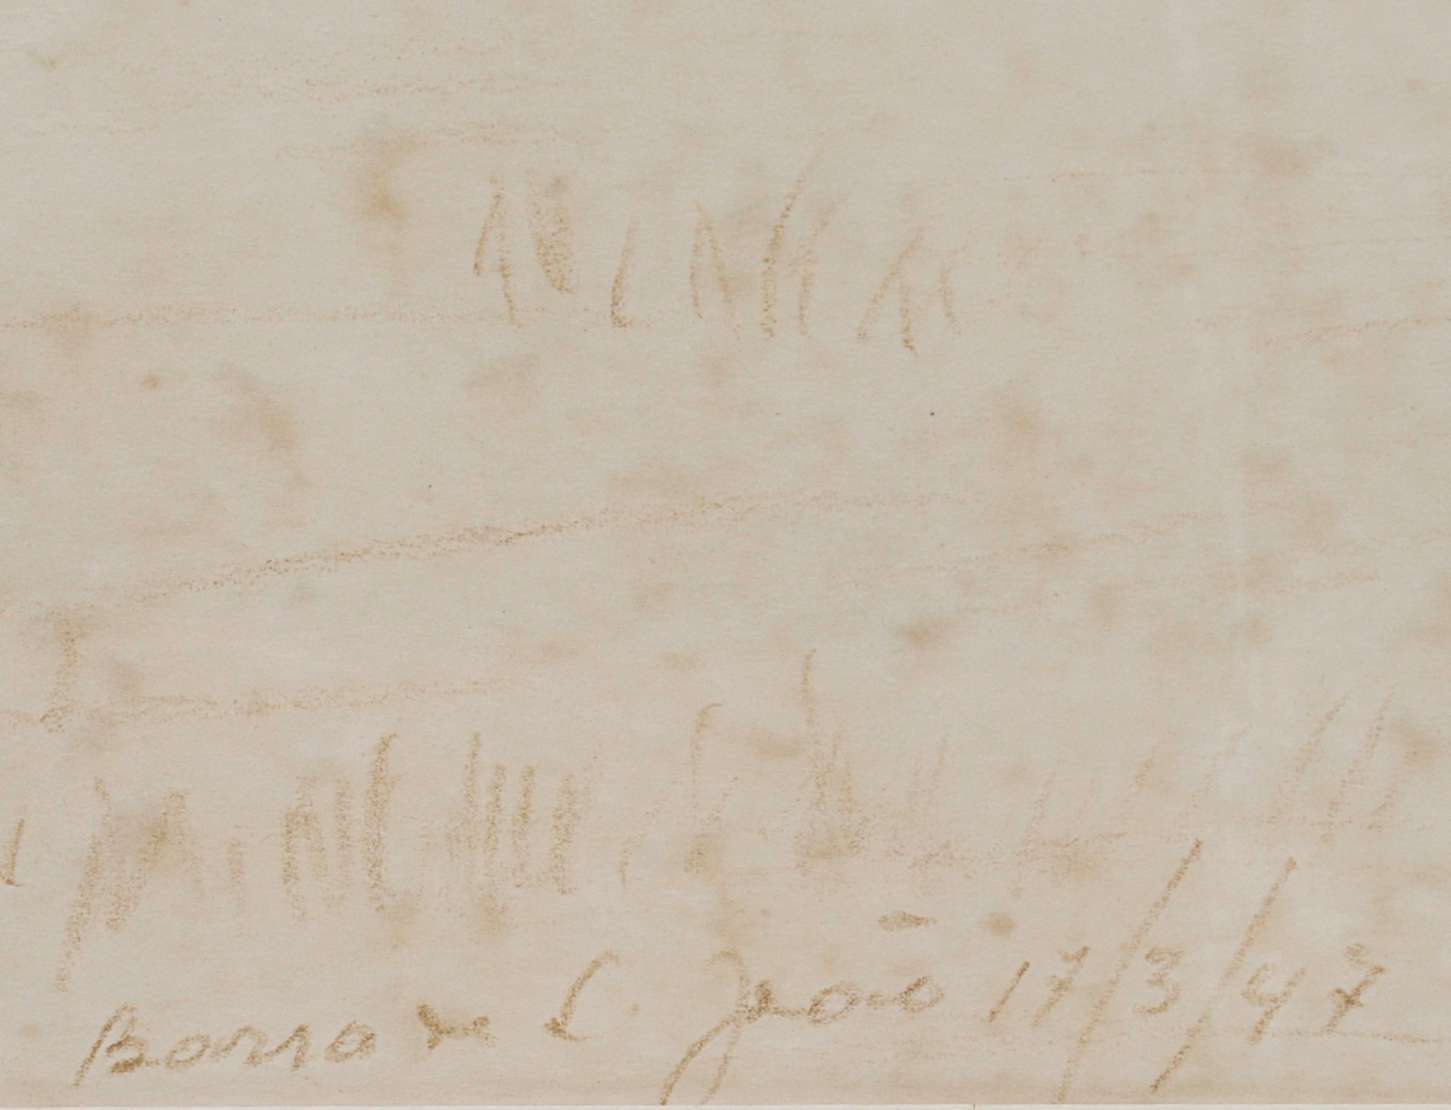 Barra de S. João 17/3/47